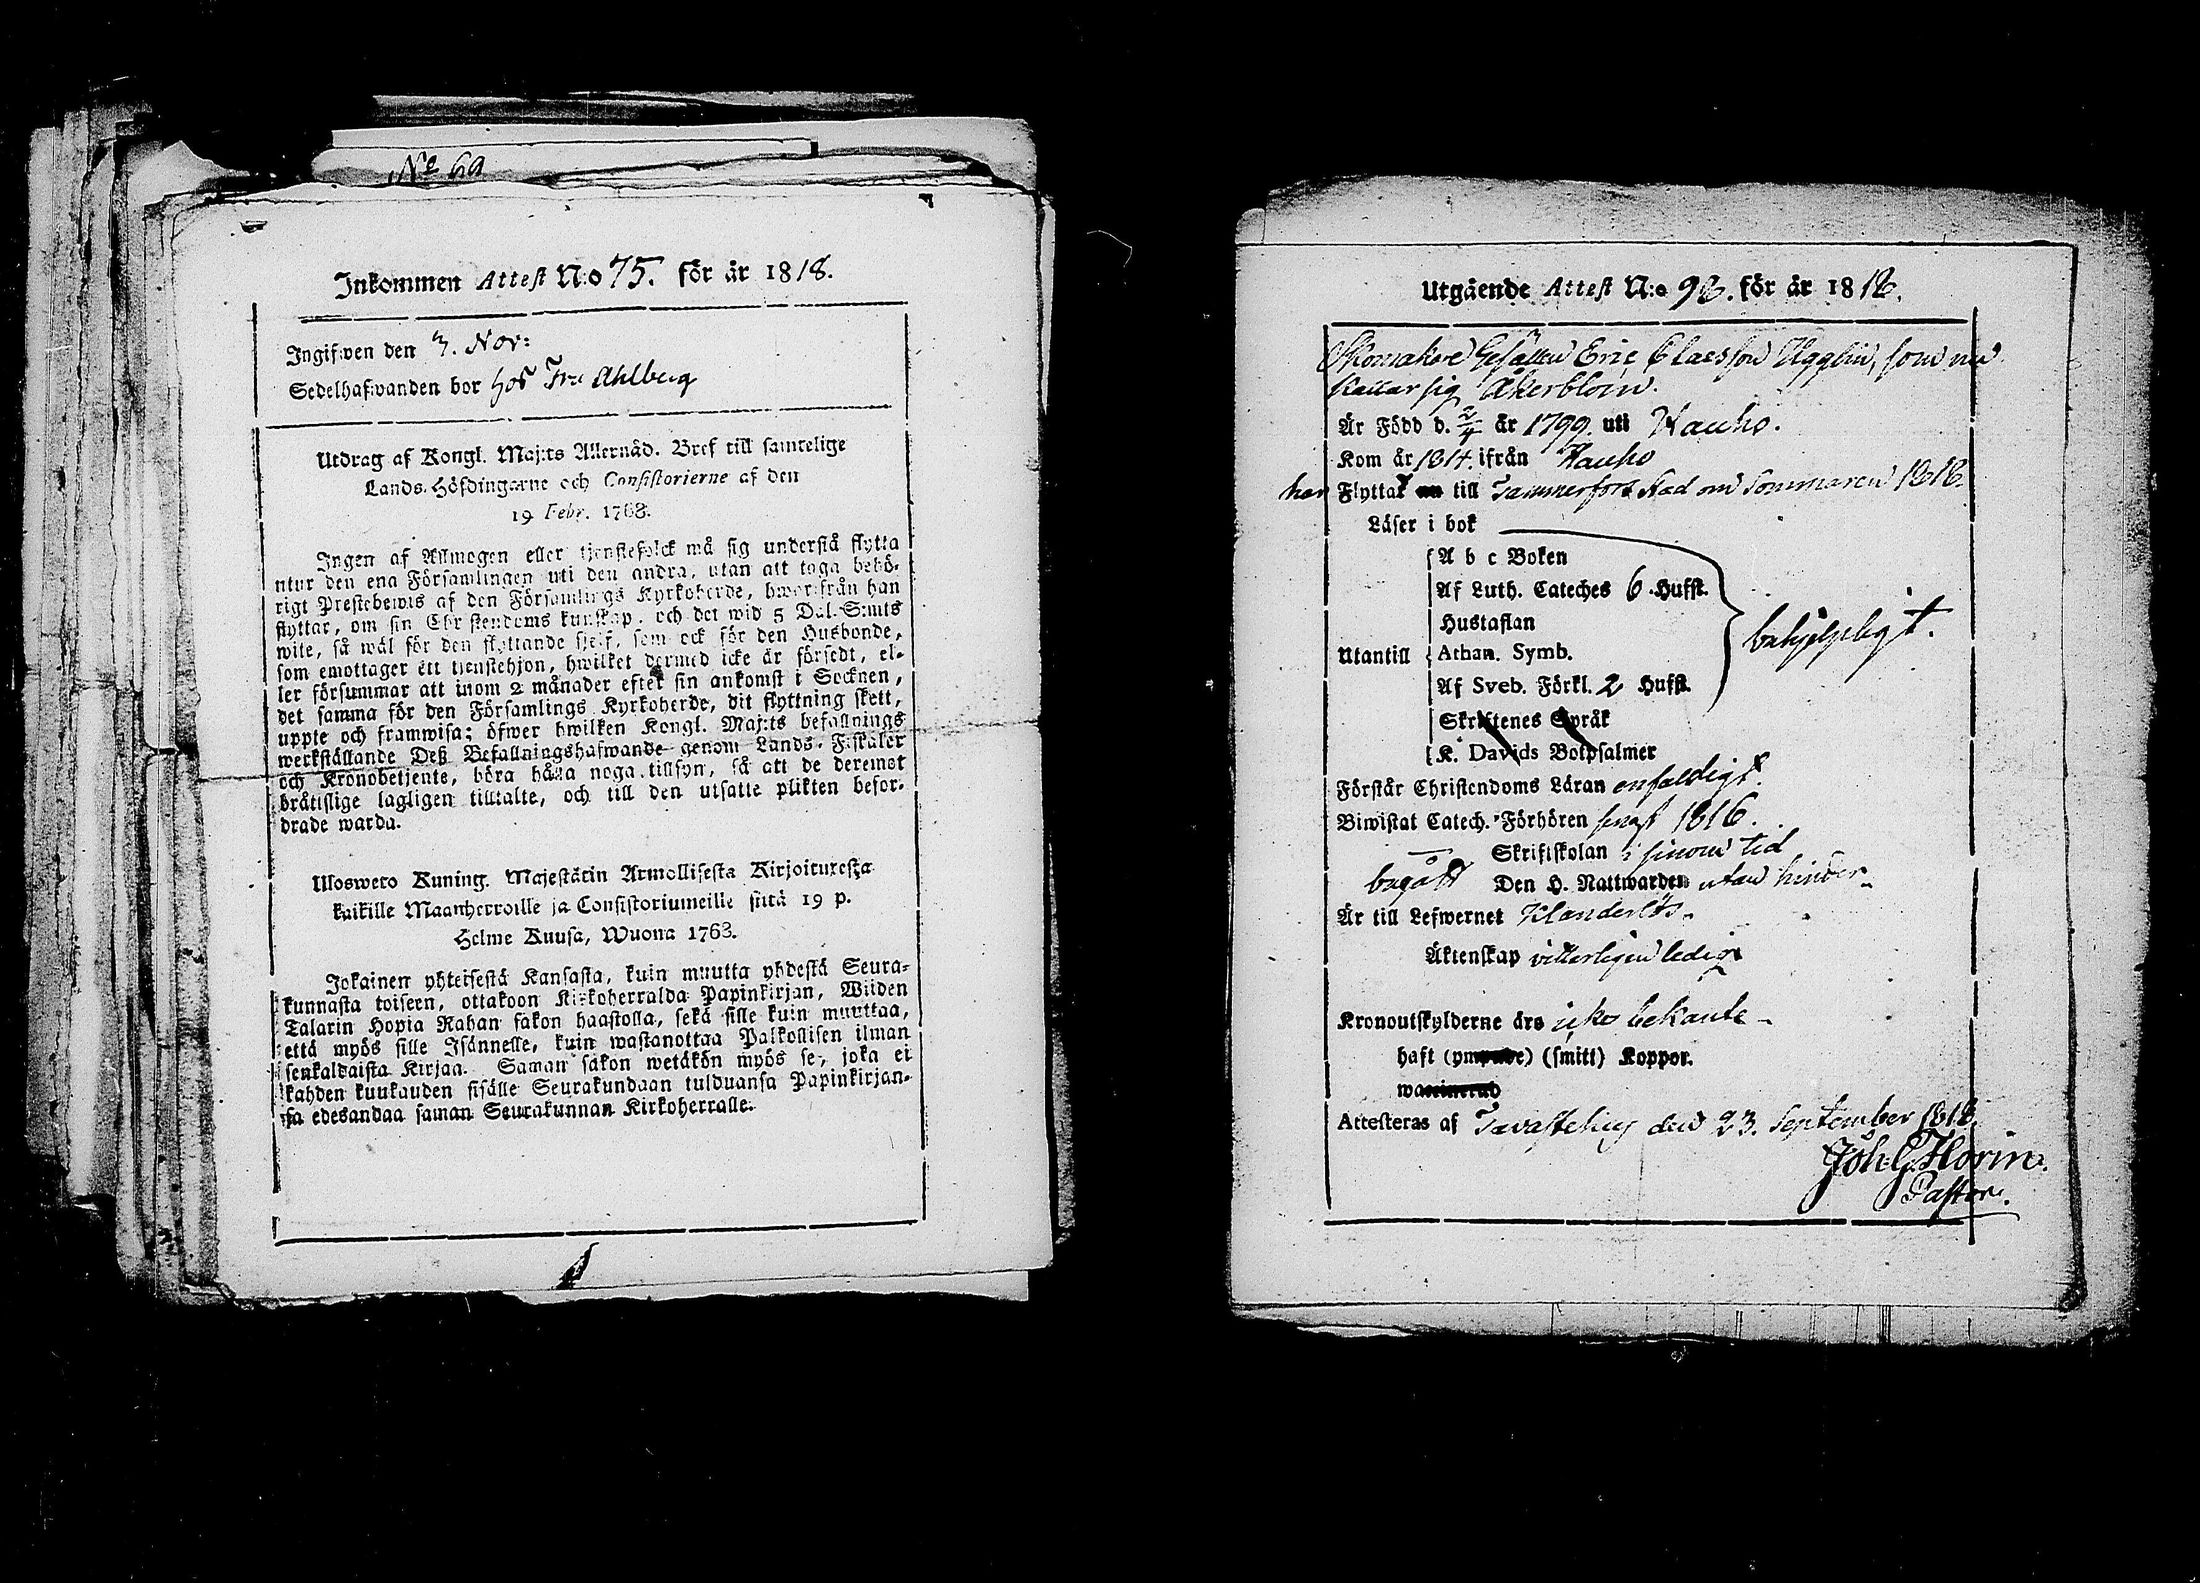 No 69
Inkommen Attest N:o 75. för år 1818.
Ingifwen den 3. Nov:
Sedelhafwanden bor hos Fru Ahlberg
Utdrag af Kongl. Maj:ts Allernåd. Bref till samtelige
Lands-Höfdingarne och Consistorierne af den
19 Febr. 1768.
Ingen af Allmogen eller tjenstefolck må sig understå flytta
utur den ena Församlingen uti den andra, utan att taga behö-
rigt Prestebewis af den Församlings Kyrkoherde, hworifrån han
flyttar, om sin Christendoms kunskap, och det wid 5 Dal. S:mts
wite, så wäl för den flyttande sjelf, som ock för den Husbonde,
som emottager ett tjenstehjon, hwilket dermed icke är försedt, el-
ler försummar att inom 2 månader efter sin ankomst i Socknen,
det samma för den Församlings Kyrkoherde, dit flyttning skett,
uppte och framwisa; öfwer hwilken Kongl. Maj:ts befallnings
werkställande Deß Befallningshafwande genom Lands-Fiskaler
och Kronobetjente, böra hålla noga tillsyn, så att de deremot
bråtislige lagligen tilltalte, och till den utsatte plikten befor-
drade warda.
Ulosweto Kuning. Majestätin Armollisesta Kirjoituxesta
kaikille Maanherroille ja Consistoriumeille siitä 19 p.
Helme Kuusa, Wuona 1763.
Jokainen yhteisestä Kansasta, kuin muutta yhdestä Seura-
kunnasta toiseen, ottakoon Kirkoherralda Papinkirjan, Wiiden
Talarin Hopia Rahan sakon haastolla, sekä sille kuin muuttaa,
että myös sille Isännelle, kuin wastanottaa Palkollisen ilman
senkaldaista Kirjaa. Saman sakon wetäkön myös se, joka ei
kahden kuukauden sisälle Seurakundaan tulduansa Papinkirjan-
sa edesandaa saman Seurakunnan Kirkoherralle.
Utgående Attest N:o 93. för år 1818.
Skomakare Gesällen Eric Claesson Ugglin, som nu
kallar sig Åkerblom.
Är Född d. 2/4 år 1799. uti Hauho.
Kom år 1814. ifrån Hauho
har Flyttat till Tammerfors stad om Sommaren 1818.
Läser i bok
A b c Boken
Af Luth. Cateches 6 Hufst.
Hustaflan
behjelpeligt.
Utantill Athan. Symb.
Af Sveb. Förkl. 2 Hufst.
Skriftenes Språk
K. Davids Botpsalmer
Förstår Christendoms Läran enfaldigt.
Biwistat Catech. Förhören senast 1816.
Skriftskolan i sinom tid
begått Den H. Nattwarden utan hinder
Är till Lefwernet Klanderlös.
Äktenskap vitterligen ledig
Kronoutskylderne äro icke bekante
haft (ympade) (smitt) Koppor.
waccinerad
Attesteras af Tavastehus den 23. September 1818.
Joh. G. Florin.
Pastor.